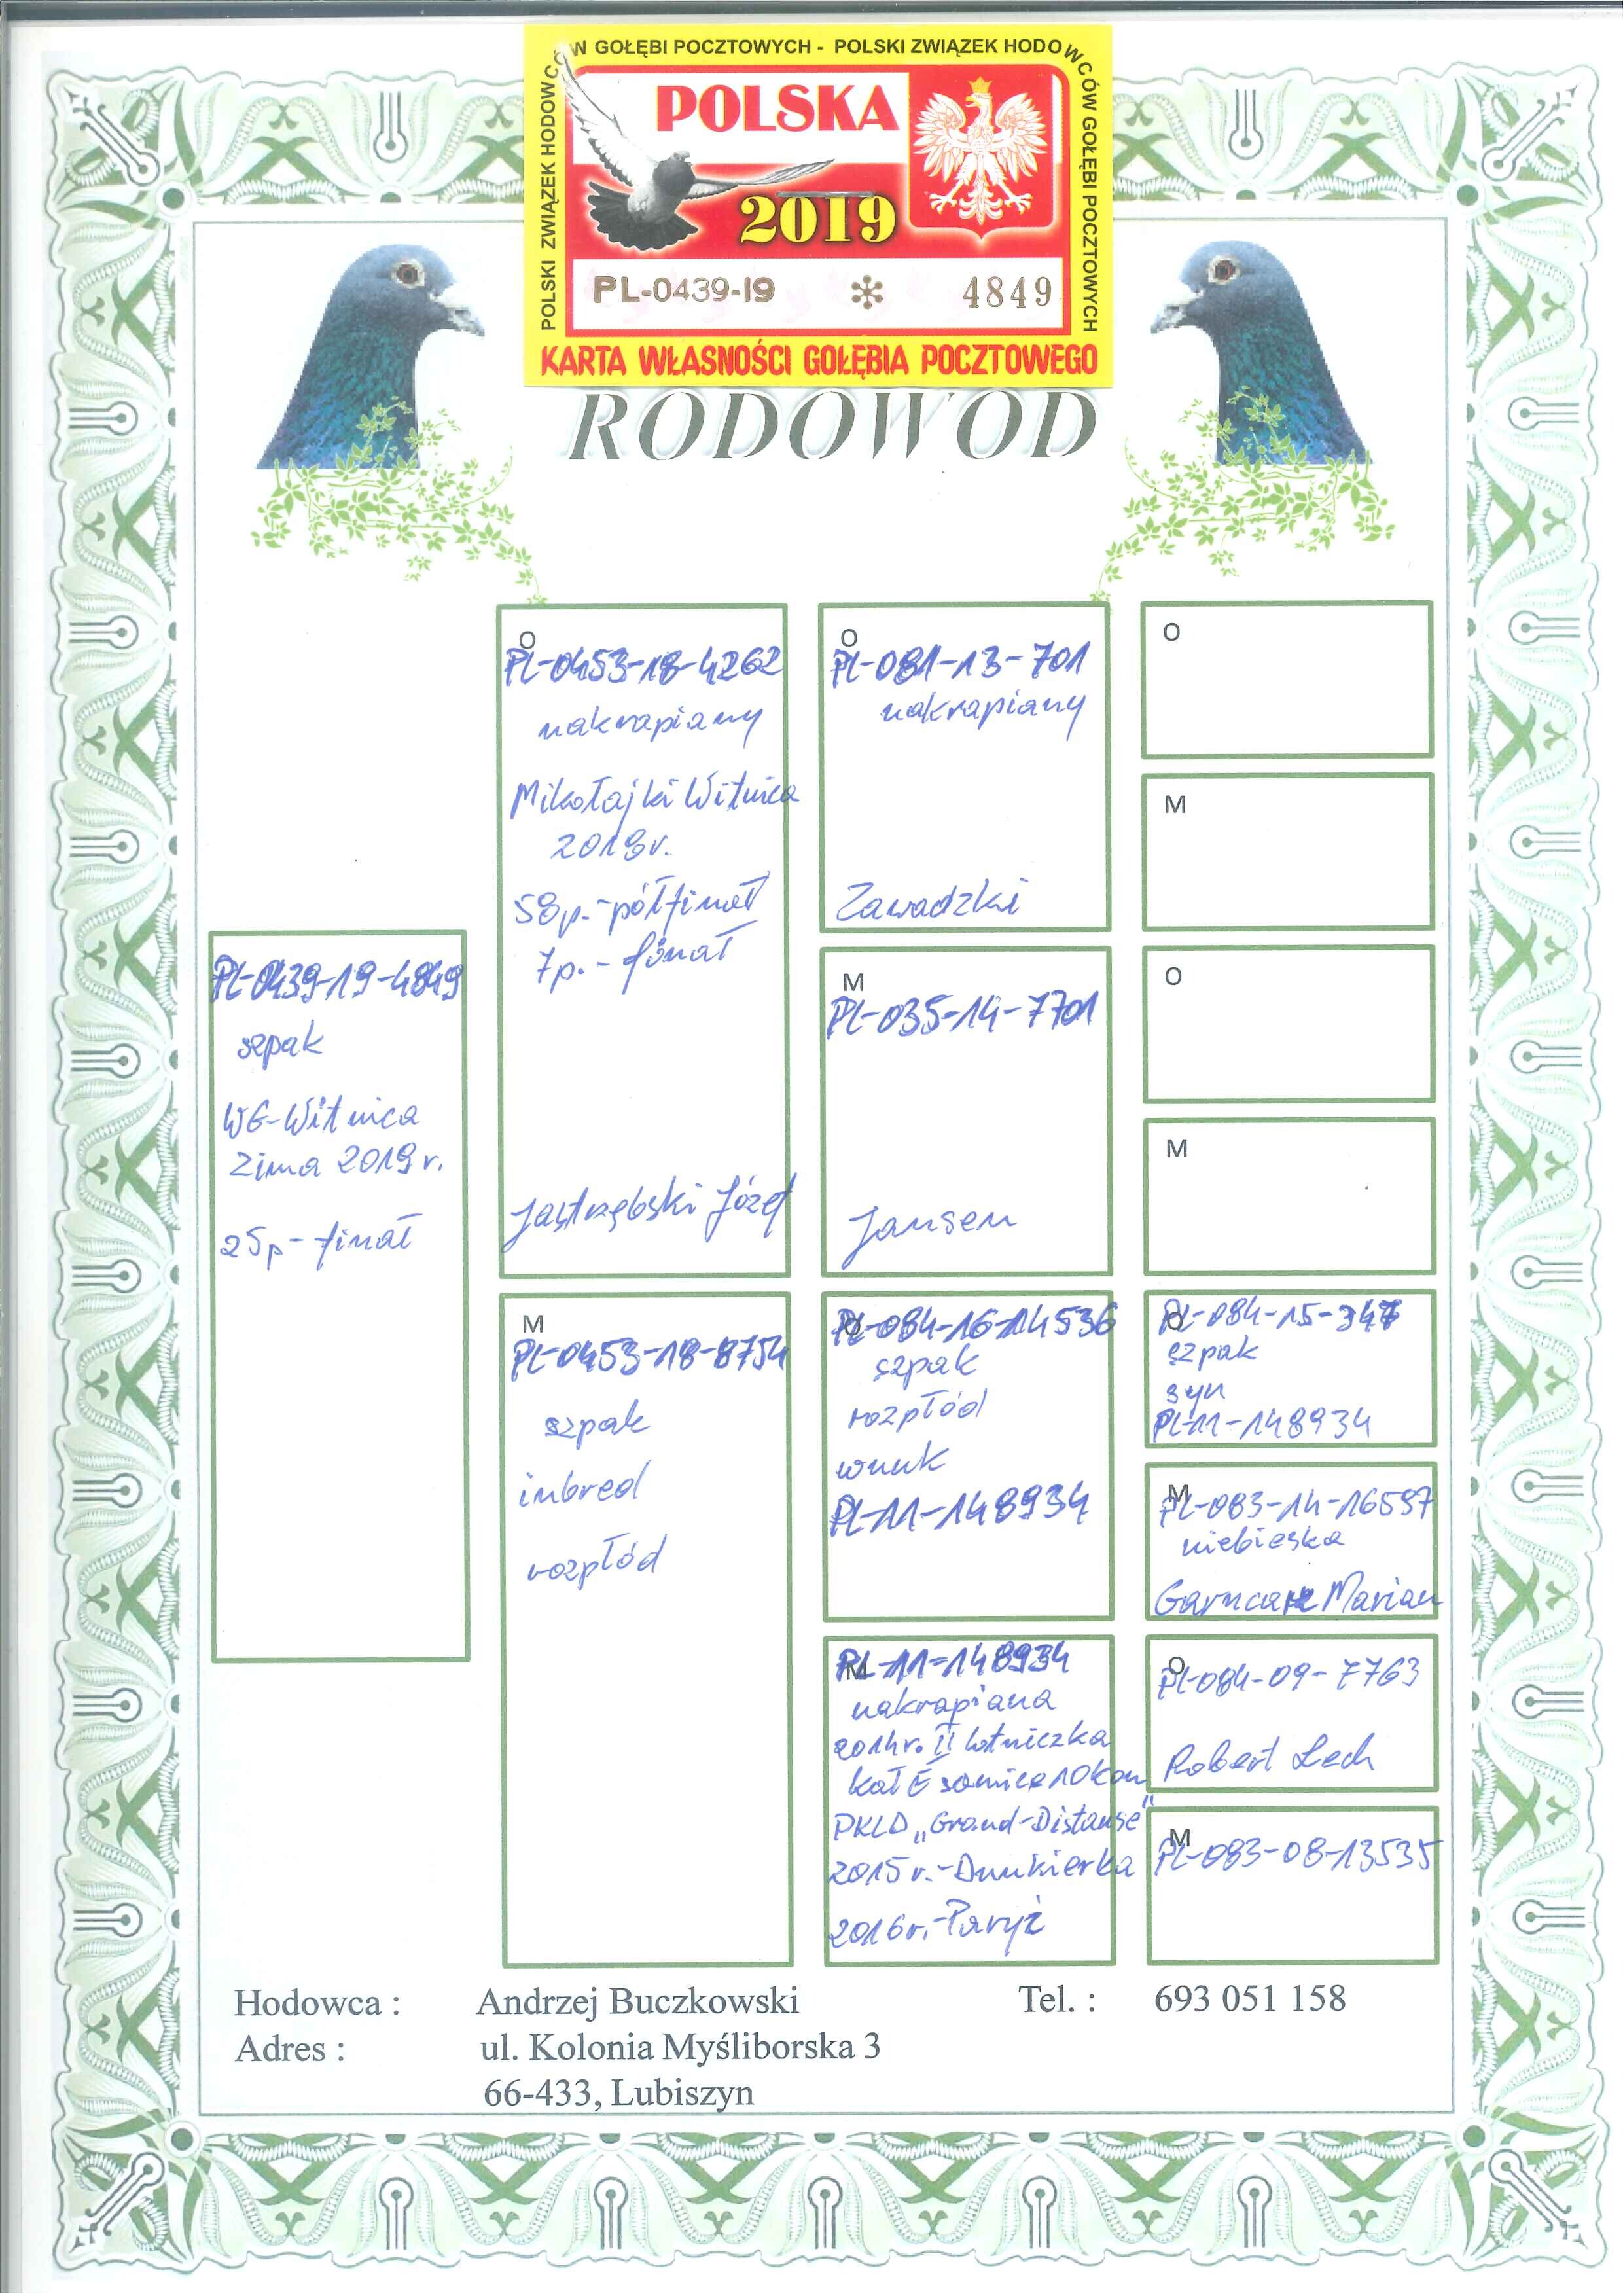 POLSKI ZWIĄZEK HODOWCÓW GOŁĘBI POCZTOWYCH - POLSKI ZWIĄZEK HODOWCÓW GOŁĘBI POCZTOWYCH
POLSKA
2019
PL-0439-19 * 4849
KARTA WŁASNOŚCI GOŁĘBIA POCZTOWEGO
RODOWÓD
PL-0439-19-4849
szpak
WG-Witnica
Zima 2019 r.
25p - finał
O
PL-0453-18-4262
nakrapiany
Mikołajki Witnica
2018r.
58p. - półfinał
7p. - finał
Jastrzębski Józef
M
PL-0453-18-8754
szpak
inbred
rozpłód
O
PL-081-13-701
nakrapiany
Zawadzki
M
PL-035-14-7701
Jansen
O
PL-084-16-14536
szpak
rozpłód
wnuk
PL-11-148934
M
PL-11-148934
nakrapiana
2014r. II lotniczka
kat E samice 10kon
PKLD „Grand-Distanse"
2015 r. - Dunkierka
2016 r. - Paryż
O
M
O
M
O
PL-084-15-347
szpak
syn
PL-11-148934
M
PL-083-14-16597
niebieska
Garncarz Marian
O
PL-084-09-7763
Robert Lech
M
PL-083-08-13535
Hodowca : Andrzej Buczkowski Tel. : 693 051 158
Adres : ul. Kolonia Myśliborska 3
66-433, Lubiszyn